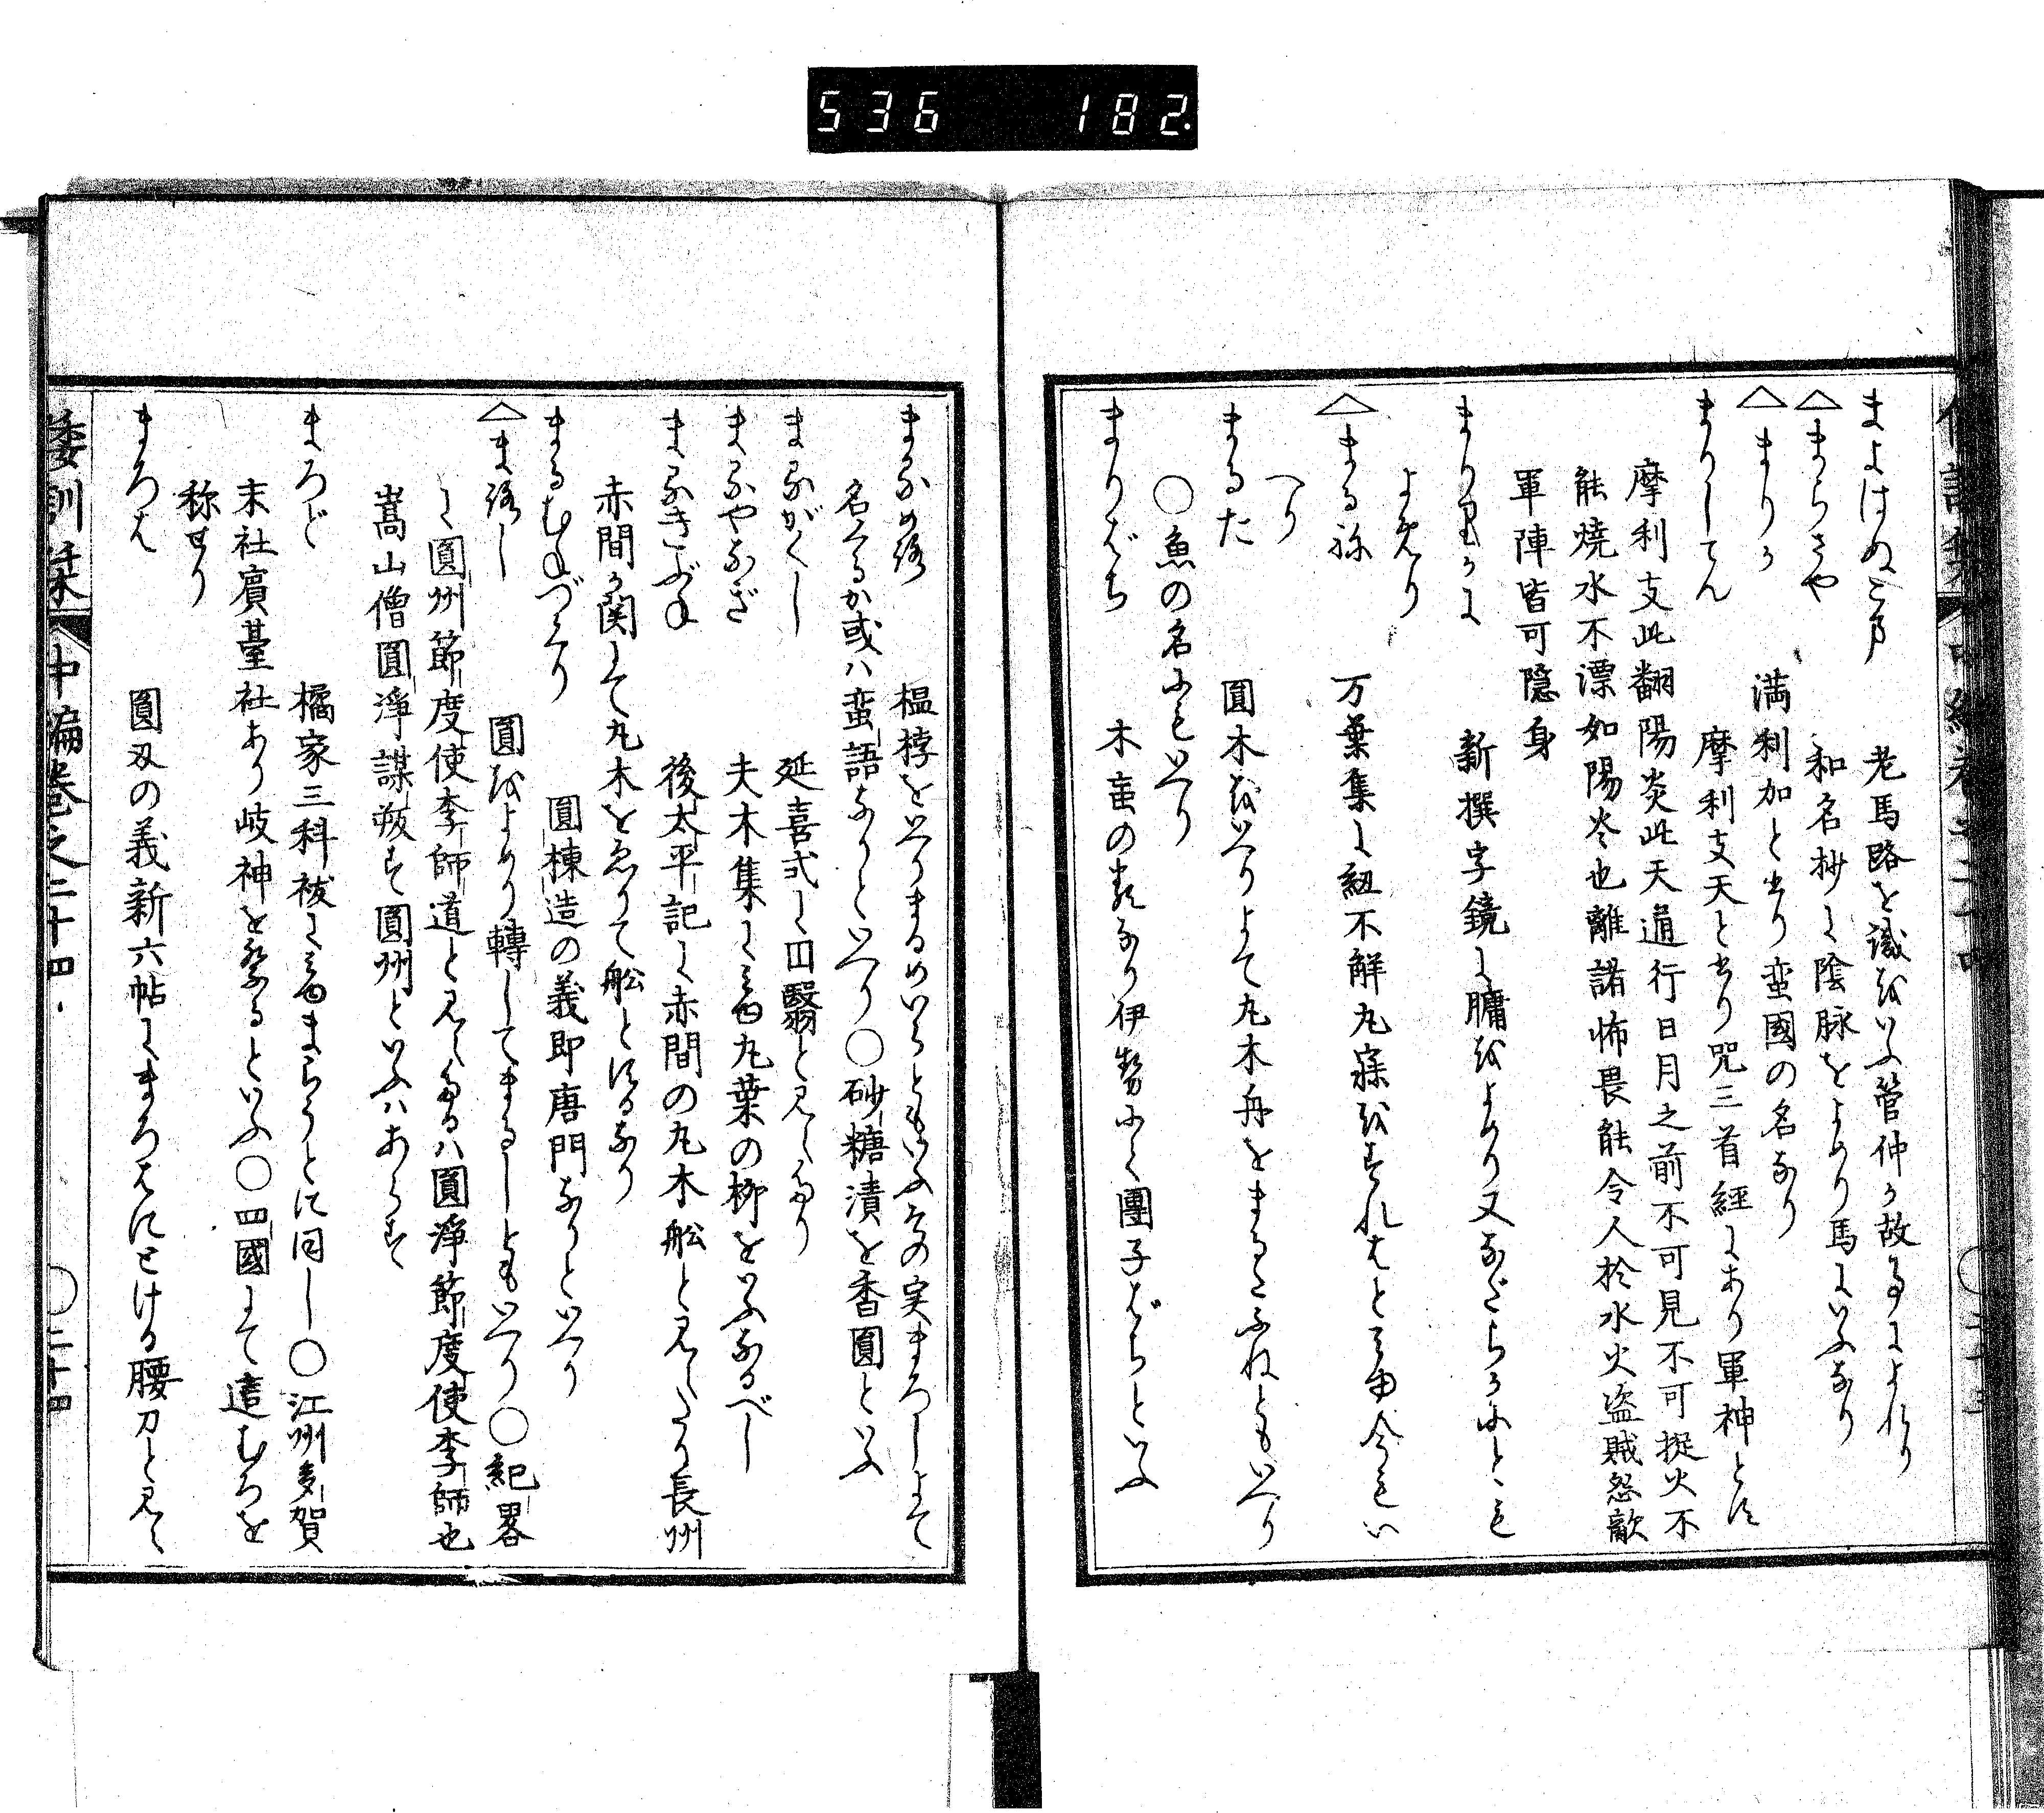 536 182.
まよはぬこま 老馬路を識をいふ管仲か故事によれり
△まらさや 和名抄に陰脉をよめり馬にいふなり
△まりか 満利加と書り蛮國の名なり
まりしてん 摩利支天と書り咒三首經にあり軍神とす
摩利支此翻陽炎此天通行日月之前不可見不可捉火不
能燒水不漂如陽炎也離諸怖畏能令人於水火盗賊怨敵
軍陣皆可隠身
新撰字鏡に膅をよめり又なだらかにとも
よめり
△まろね 万葉集に紐不解丸寐をすれはとみゆ今もい
へり
まるた 圓木をいへりよて丸木舟をまるたふねともいへり
○魚の名にもいへり
まりばち 木䖝の類なり伊勢にて團子ばちといふ
まるめろ 榲桲をいへりまるめいらともいふその実まろしよて
名くるか或ハ蛮語なりといへり○砂糖漬を香圓といふ
まるがくし 延喜式に
と見えたり
まるやなぎ 夫木集にみゆ丸葉の柳をいふなるべし
まるきぶね 後太平記に赤間の丸木舩と見えたり長州
赤間か関にて丸木をゑりて舩とするなり
まるむねづくり 圓棟造の義即唐門なりといへり
△まろし 圓をよめり轉してまるしともいへり○紀畧
に圓州節度使李師道と見えたるハ圓淨節度使李師也
嵩山僧圓淨謀叛す圓州といふハあらす
まろど 橘家三科祓にみゆまらうとに同し○江州多賀
末社賔䑓社あり岐神を祭るといふ○四國にて遠むろを
称せり
まろは 圓刄の義新六帖にまろはにとける腰刀と見え
倭訓栞 中編巻之二十四 ○二十四